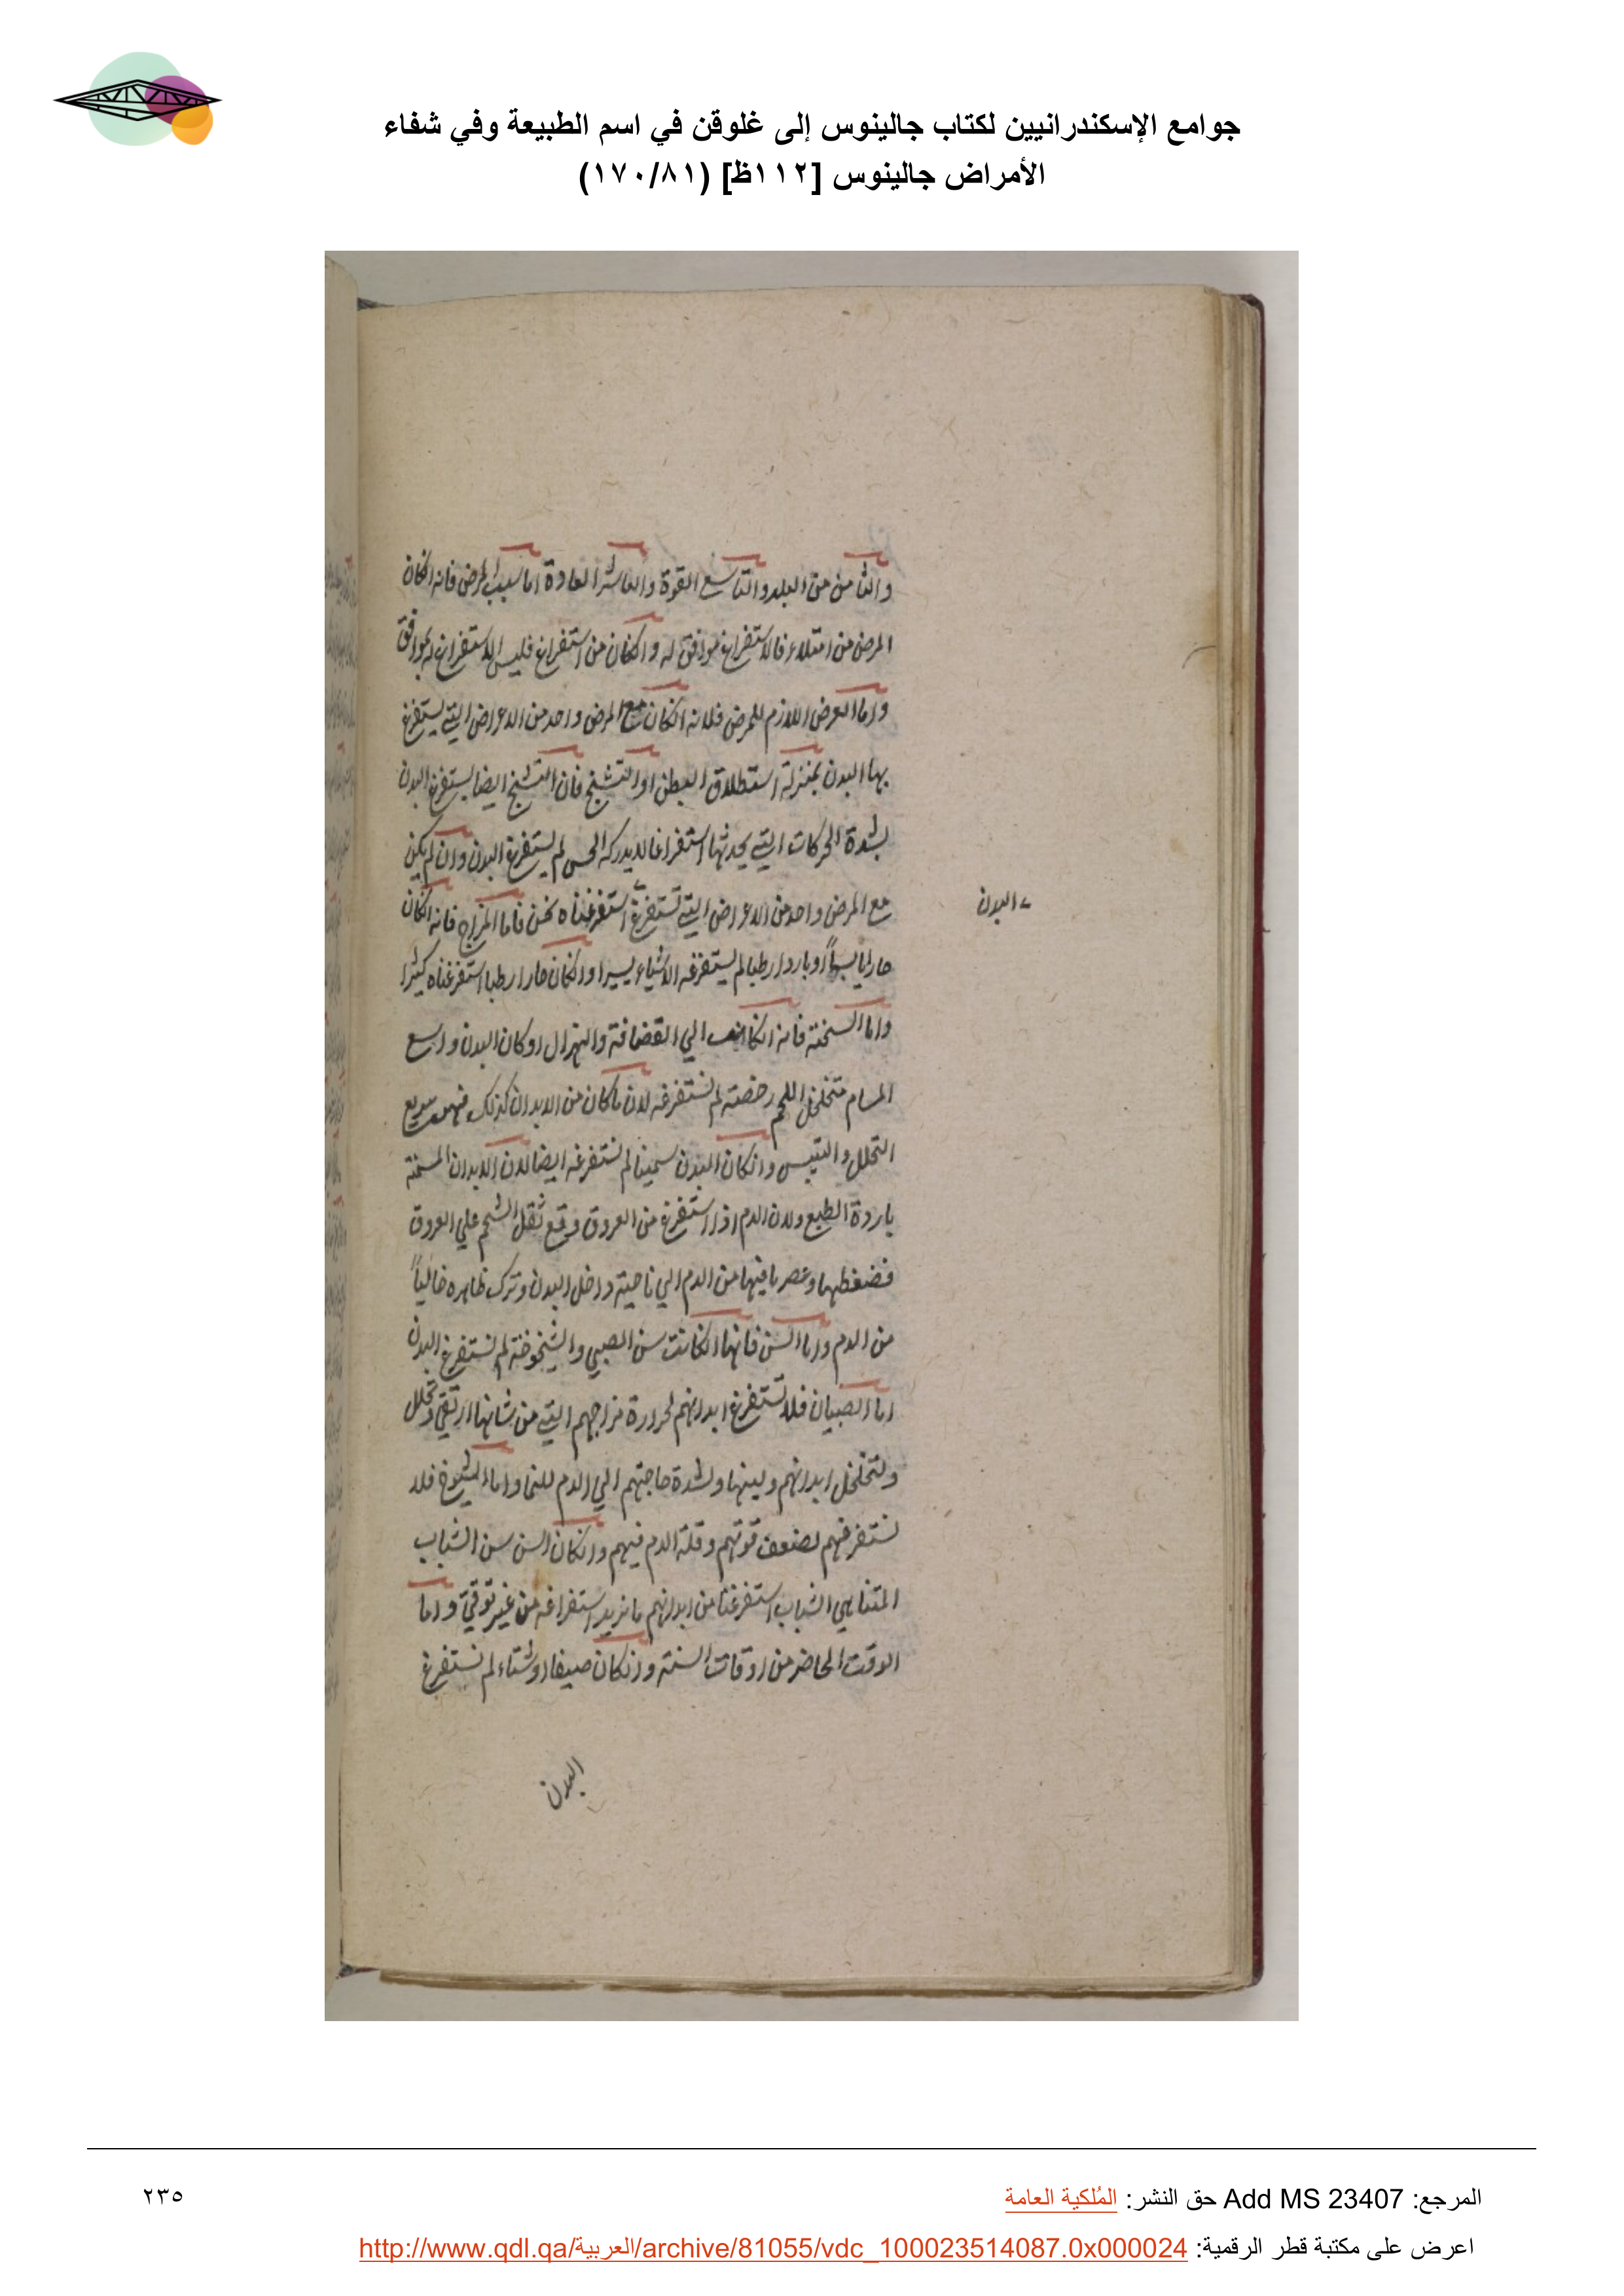 جوامع الإسكندرانيين لكتاب جالينوس إلى غلوقن في اسم الطبيعة وفي شفاء
الأمراض جالينوس [١١٢ظ] (١٧٠/٨١)
والثامن من البلد والتاسع القوة والعاشر العادة اما سبب المرض فانه انكان
المرض من امتلاء فالاستفراغ موافق له وانكان من استفراغ فليس الاستفراغ له بموافق
واما العرض اللازم للمرض فلانه انكان مع المرض واحد من الاعراض التي يستفرغ
بها البدن بمنزلة استطلاق البطن او التشنج فان التشنج ايضا يستفرغ البدن
بشدة الحركات التي يحدثها استفراغا لا يدركه الحس لم يستفرغ البدن وان لم يكن
مع المرض واحد من الاعراض التي تستفرغ استفرغناه نحن فاما المزاج فانه انكان
> البدن
حارا يابسا او باردا رطبا لم يستفرغه الا شياء يسيرا وانكان حارا رطبا استفرغناه كثيرا
واما السخنة فانه انكانت الي القضافة والهزال او كان البدن واسع
المسام متخلخل اللحم رخصته لم نستفرغه لان ماكان من الابدان كذلك فهو سريع
التحلل والتيبس وانكان البدن سمينا لم نستفرغه ايضا لان الابدان السمينة
باردة الطبع ولان الدم اذا استفرغ من العروق وقع ثقل الشحم علي العروق
فضغطها وعصر ما فيها من الدم الي ناحية داخل البدن وترك ظاهره خالياً
من الدم واما السن فانها انكانت سن الصبي والشيخوخة لم نستفرغ البدن
اما الصبيان فلا تستفرغ ابدانهم لحرارة مزاجهم التي من شانها ان تحلل
ولتخلخل ابدانهم ولينها ولشدة حاجتهم الي الدم للنما واما الشيوخ فلا
نستفرغهم لضعف قوتهم وقلة الدم فيهم وانكان السن سن الشباب
المتناهي الشباب استفرغنا من ابدانهم ما نريد استفراغه من غير توقي واما
الوقت الحاضر من اوقات السنة وانكان صيفا او شتاء لم نستفرغ
البدن
المرجع: Add MS 23407 حق النشر: المُلكية العامة
٢٣٥
اعرض على مكتبة قطر الرقمية: http://www.qdl.qa/العربية/archive/81055/vdc_100023514087.0x000024